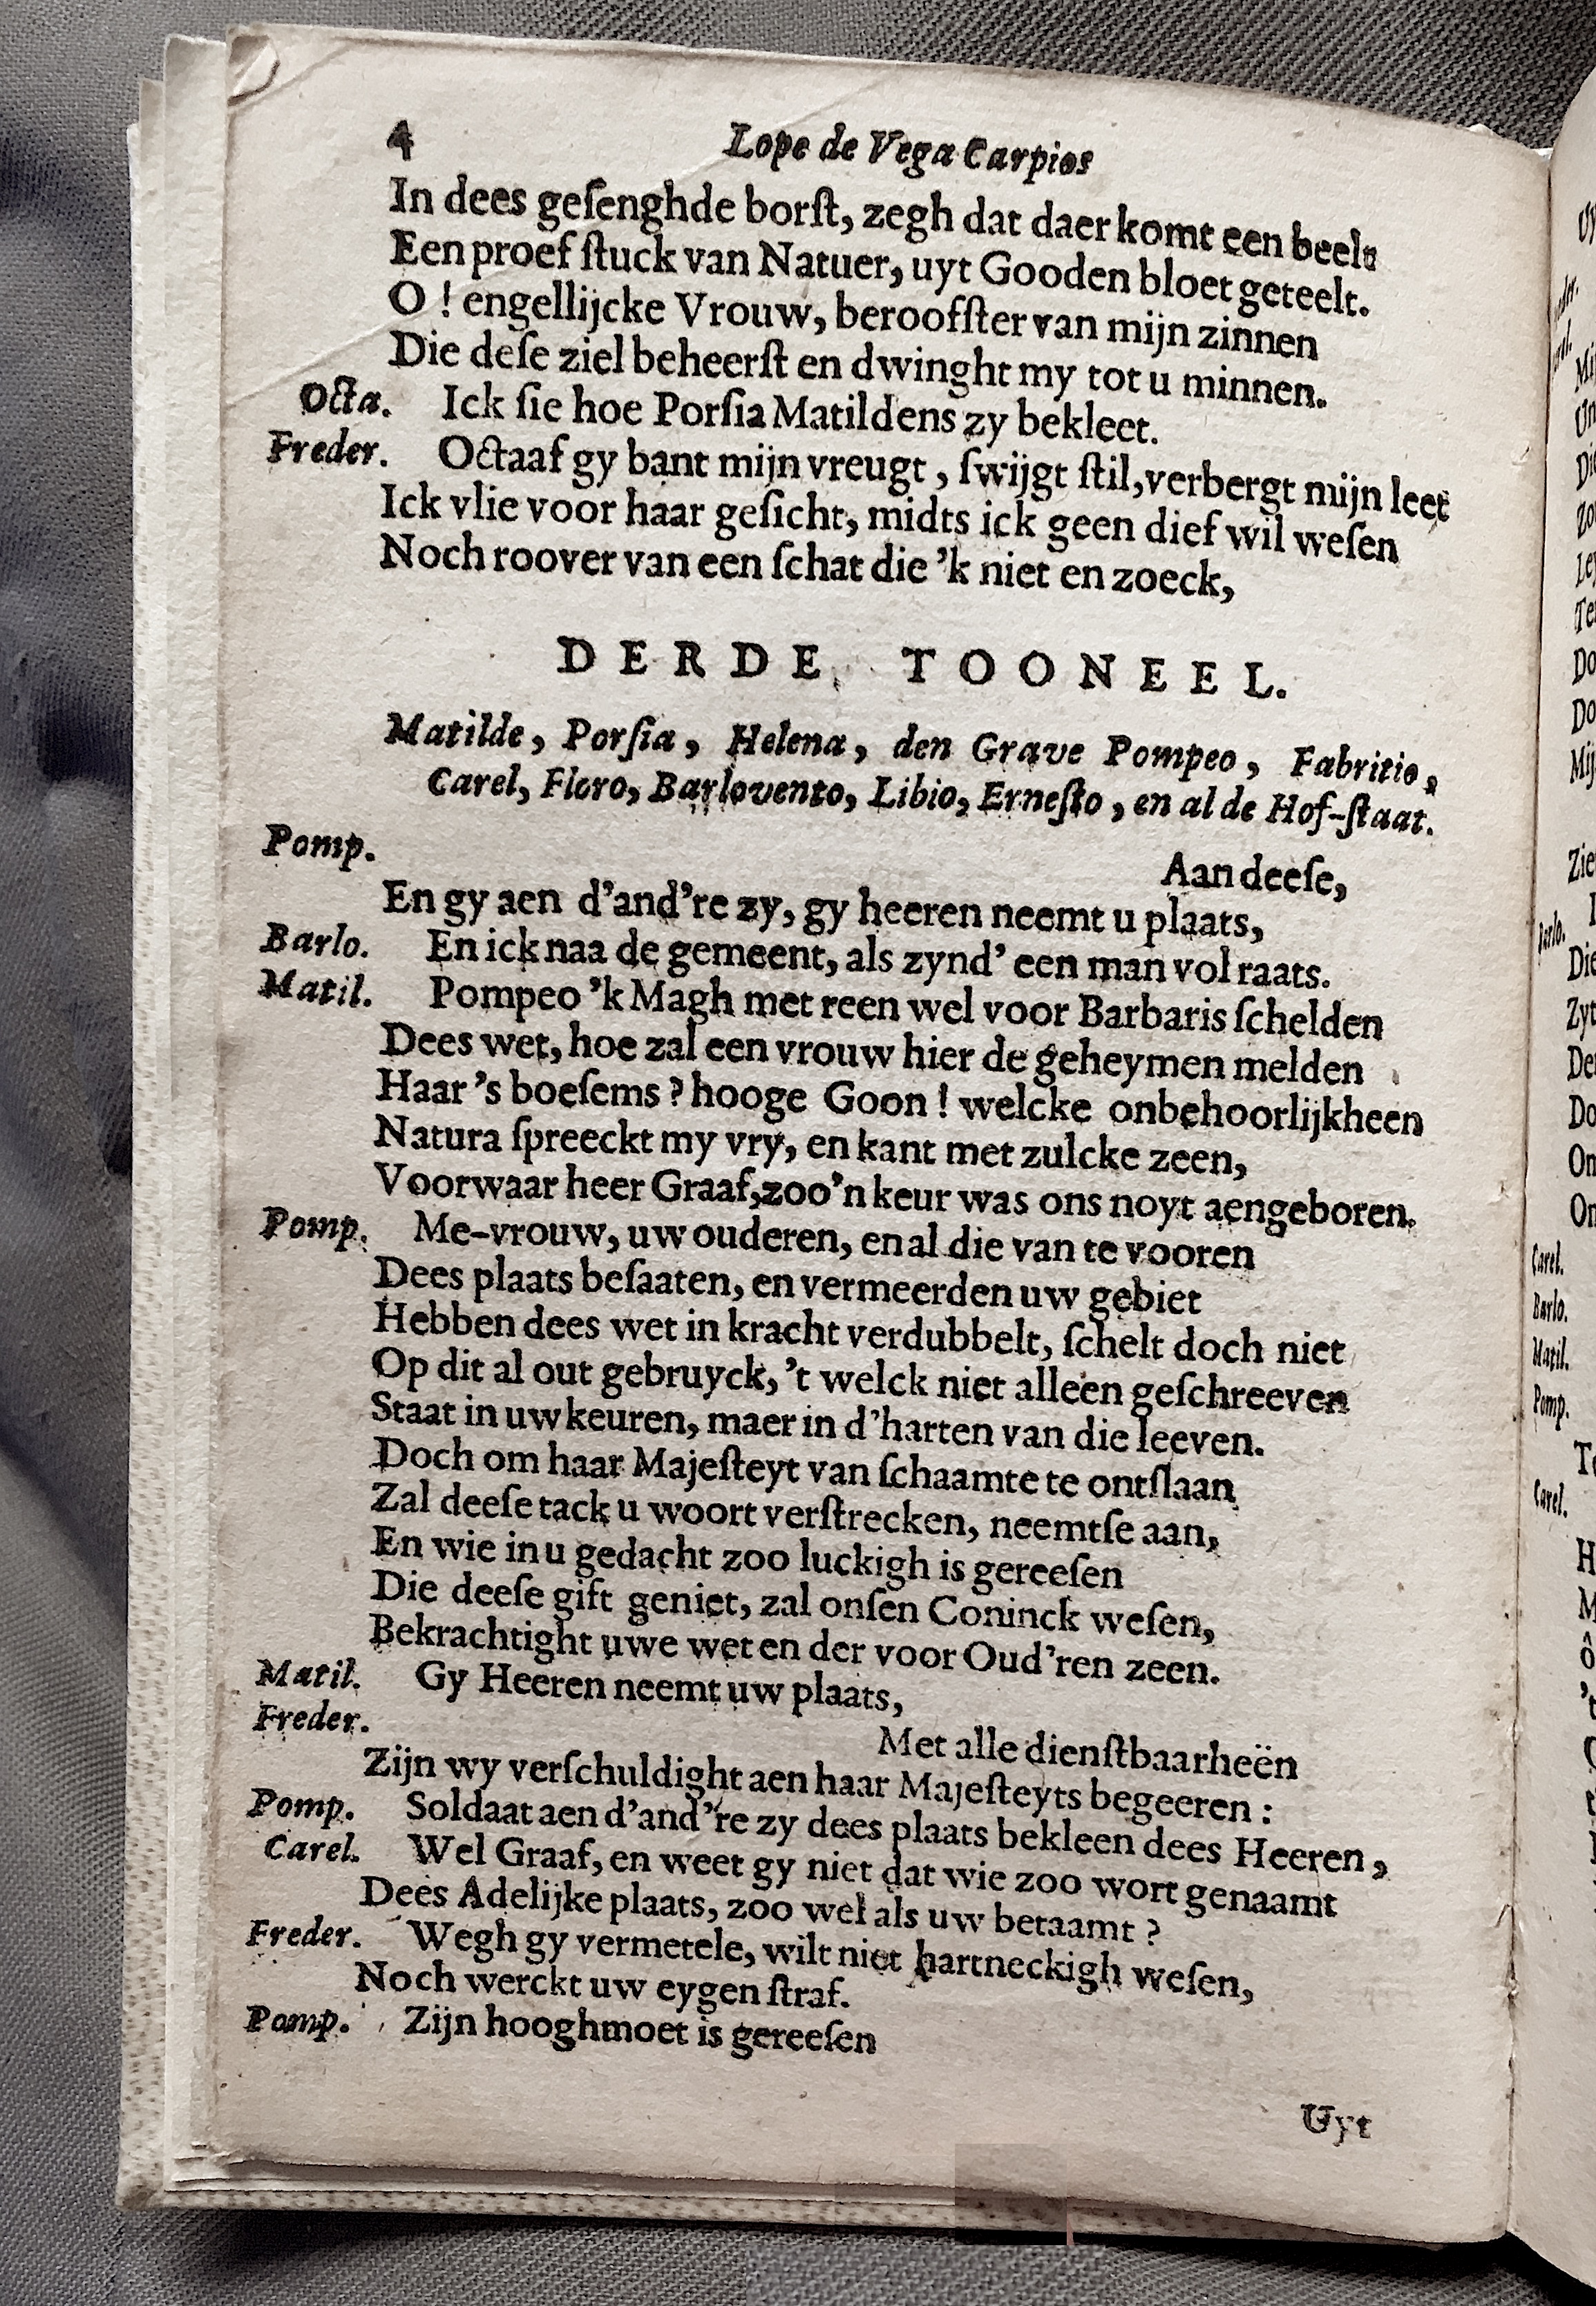 4 Lope de Vega Carpios
In dees geſenghde borſt, zegh dat daer komt een beelt
Een proef ſtuck van Natuer, uyt Gooden bloet geteelt.
O ! engellijcke Vrouw, beroofſter van mijn zinnen
Die deſe ziel beheerſt en dwinght my tot u minnen.
Octa. Ick ſie hoe Porſia Matildens zy bekleet.
Freder. Octaaf gy bant mijn vreugt, ſwijgt ſtil, verbergt mijn leet
Ick vlie voor haar geſicht, midts ick geen dief wil weſen
Noch roover van een ſchat die 'k niet en zoeck,
DERDE TOONEEL.
Matilde, Porſia, Helena, den Grave Pompeo, Fabritio,
Carel, Floro, Barlovento, Libio, Erneſto, en al de Hof-ſtaat.
Pomp. Aan deeſe,
En gy aen d'and're zy, gy heeren neemt u plaats,
Barlo. En ick naa de gemeent, als zynd' een man vol raats.
Matil. Pompeo 'k Magh met reen wel voor Barbaris ſchelden
Dees wet, hoe zal een vrouw hier de geheymen melden
Haar 's boeſems ? hooge Goon ! welcke onbehoorlijkheen
Natura ſpreeckt my vry, en kant met zulcke zeen,
Voorwaar heer Graaf, zoo'n keur was ons noyt aengeboren.
Pomp. Me-vrouw, uw ouderen, en al die van te vooren
Dees plaats beſaaten, en vermeerden uw gebiet
Hebben dees wet in kracht verdubbelt, ſchelt doch niet
Op dit al out gebruyck, 't welck niet alleen geſchreeven
Staat in uw keuren, maer in d'harten van die leeven.
Doch om haar Majeſteyt van ſchaamte te ontſlaan
Zal deeſe tack u woort verſtrecken, neemtſe aan,
En wie in u gedacht zoo luckigh is gereeſen
Die deeſe gift geniet, zal onſen Coninck weſen,
Bekrachtight uwe wet en der voor Oud'ren zeen.
Matil. Gy Heeren neemt uw plaats,
Freder. Met alle dienſtbaarheën
Zijn wy verſchuldight aen haar Majeſteyts begeeren :
Pomp. Soldaat aen d'and're zy dees plaats bekleen dees Heeren,
Carel. Wel Graaf, en weet gy niet dat wie zoo wort genaamt
Dees Adelijke plaats, zoo wel als uw betaamt ?
Freder. Wegh gy vermetele, wilt niet hartneckigh weſen,
Noch werckt uw eygen ſtraf.
Pomp. Zijn hooghmoet is gereeſen
Uyt